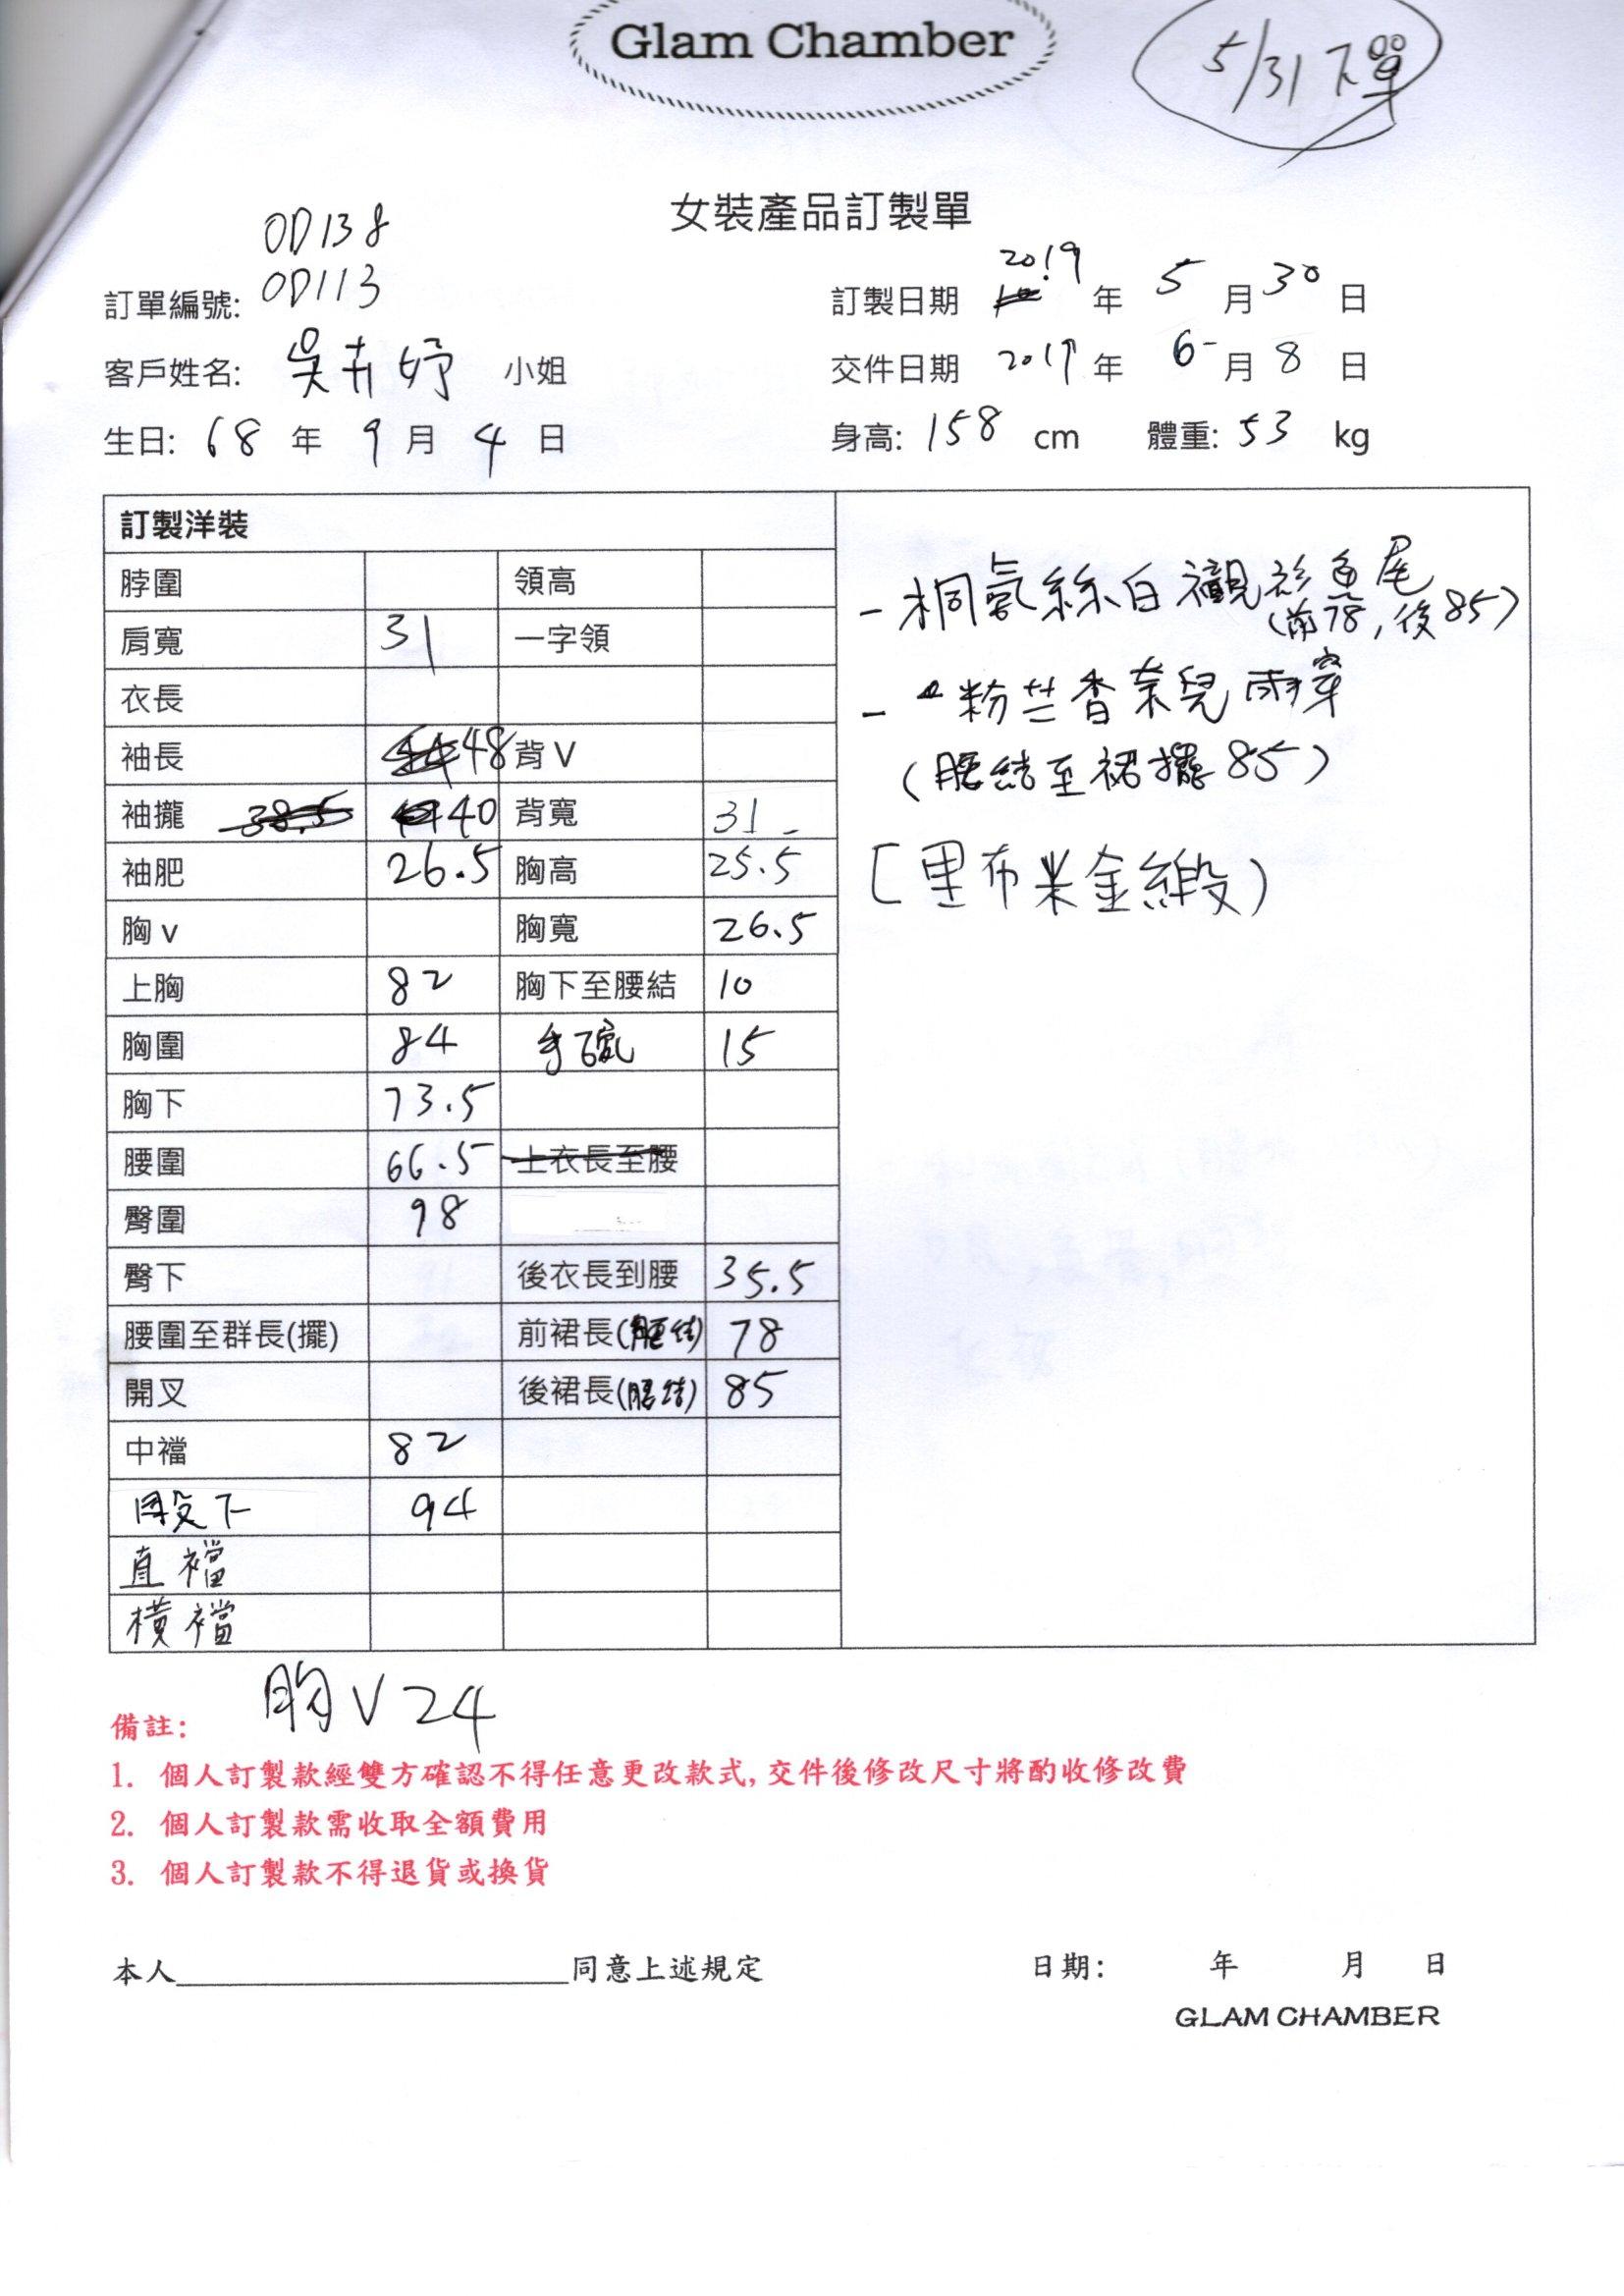 Glam Chamber
5/31下單
女裝產品訂製單
OD138
訂單編號: OD113
訂製日期 2019 年 5 月 30 日
客戶姓名: 吳卉妤 小姐
交件日期 2019 年 6 月 8 日
生日: 68 年 9 月 4 日
身高: 158 cm 體重: 53 kg
訂製洋裝
脖圍 領高
肩寬 31 一字領
衣長
袖長 48 背V
袖攏 38.5 40 背寬 31
袖肥 26.5 胸高 25.5
胸v 胸寬 26.5
上胸 82 胸下至腰結 10
胸圍 84 手 15
胸下 73.5
腰圍 66.5 上衣長至腰
臀圍 98
臀下 後衣長到腰 35.5
腰圍至群長(擺) 前裙長(腰結) 78
開叉 後裙長(腰結) 85
中襠 82
下 94
直襠
橫襠
- 絲白襯衫魚尾
(前78,後85)
- 粉芒香奈兒兩穿
(腰結至裙擺85)
[里布米金緞)
胸V24
備註:
1. 個人訂製款經雙方確認不得任意更改款式,交件後修改尺寸將酌收修改費
2. 個人訂製款需收取全額費用
3. 個人訂製款不得退貨或換貨
本人____________________同意上述規定
日期: 年 月 日
GLAM CHAMBER